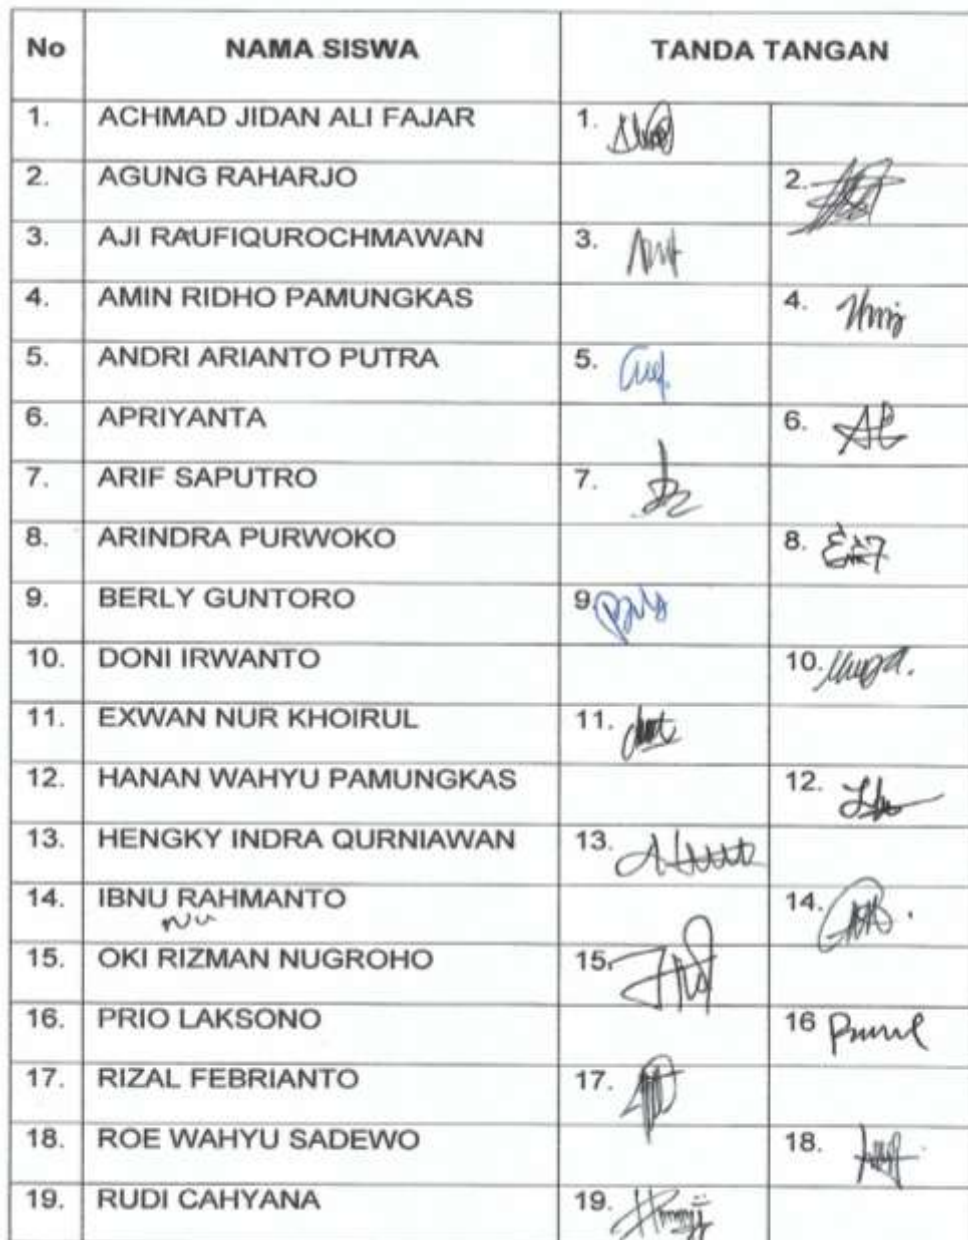 No NAMA SISWA TANDA TANGAN
1. ACHMAD JIDAN ALI FAJAR 1.
2. AGUNG RAHARJO 2.
3. AJI RAUFIQUROCHMAWAN 3.
4. AMIN RIDHO PAMUNGKAS 4.
5. ANDRI ARIANTO PUTRA 5.
6. APRIYANTA 6.
7. ARIF SAPUTRO 7.
8. ARINDRA PURWOKO 8.
9. BERLY GUNTORO 9
10. DONI IRWANTO 10.
11. EXWAN NUR KHOIRUL 11.
12. HANAN WAHYU PAMUNGKAS 12.
13. HENGKY INDRA QURNIAWAN 13.
14. IBNU RAHMANTO 14.
nu
15. OKI RIZMAN NUGROHO 15.
16. PRIO LAKSONO 16
17. RIZAL FEBRIANTO 17.
18. ROE WAHYU SADEWO 18.
19. RUDI CAHYANA 19.